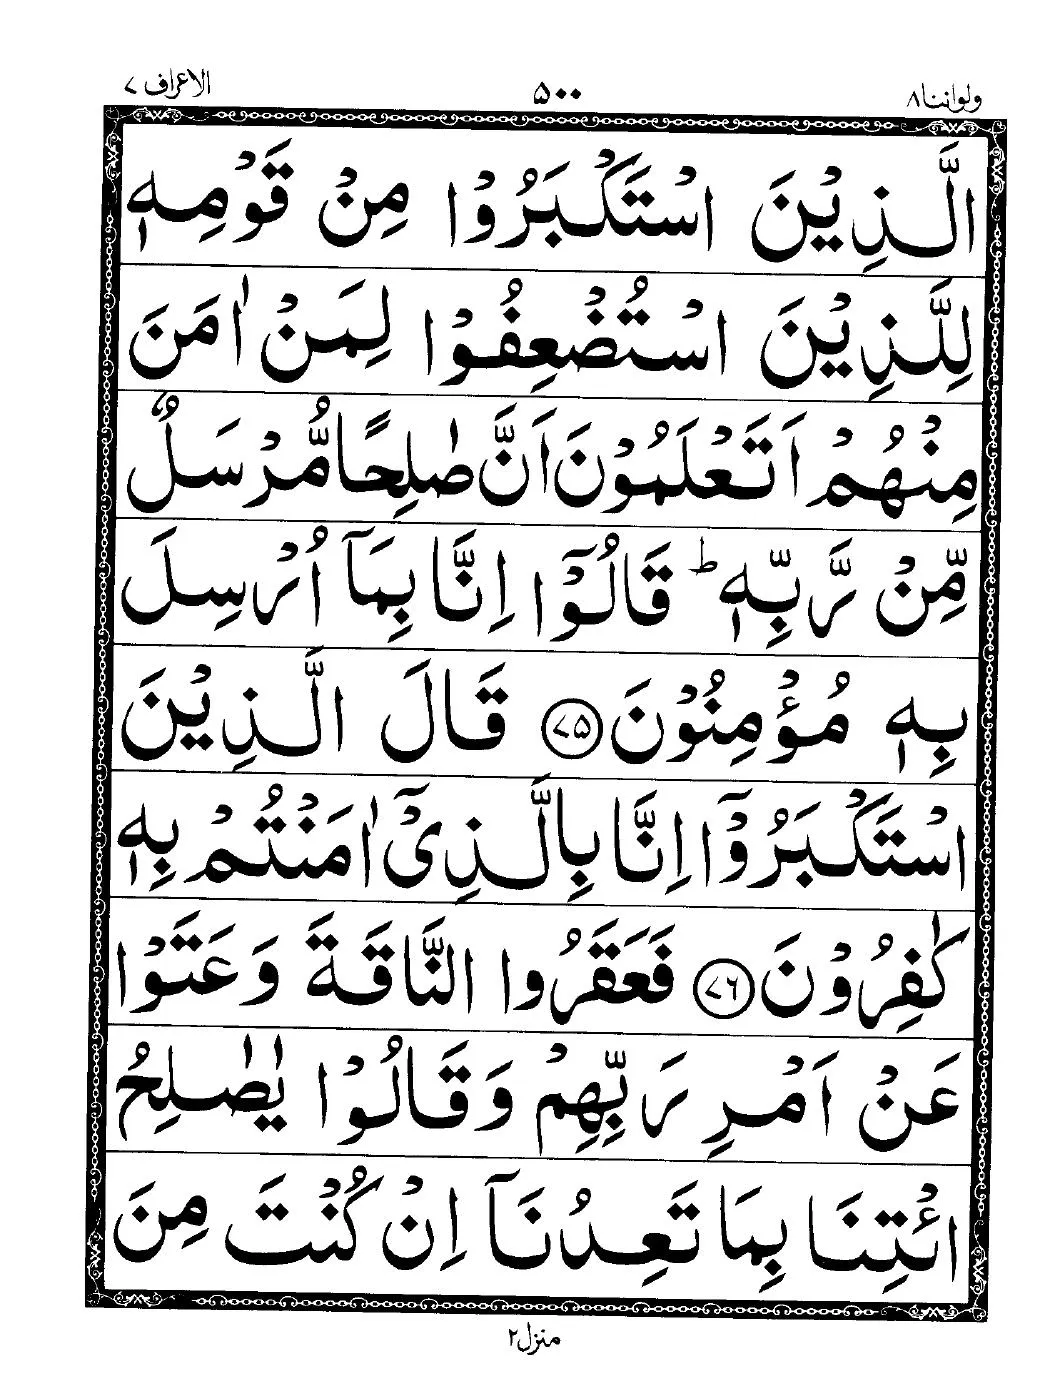 ولواننا۸ ۵۰۰ الاعراف ۷
الَّذِيْنَ اسْتَكْبَرُوْا مِنْ قَوْمِهٖ
لِلَّذِيْنَ اسْتُضْعِفُوْا لِمَنْ اٰمَنَ
مِنْهُمْ اَتَعْلَمُوْنَ اَنَّ صٰلِحًا مُّرْسَلٌ
مِّنْ رَّبِّهٖ ؕ قَالُوْۤا اِنَّا بِمَاۤ اُرْسِلَ
بِهٖ مُؤْمِنُوْنَ ۷۵ قَالَ الَّذِيْنَ
اسْتَكْبَرُوْۤا اِنَّا بِالَّذِیْۤ اٰمَنْتُمْ بِهٖ
كٰفِرُوْنَ ۷۶ فَعَقَرُوا النَّاقَةَ وَعَتَوْا
عَنْ اَمْرِ رَبِّهِمْ وَقَالُوْا يٰصٰلِحُ
ائْتِنَا بِمَا تَعِدُنَاۤ اِنْ كُنْتَ مِنَ
منزل۲